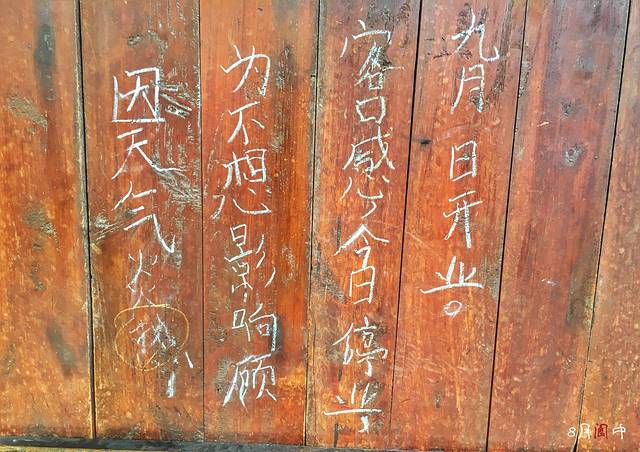 因天气炎热
为不想影响顾
客口感今日停业
九月 日开业。